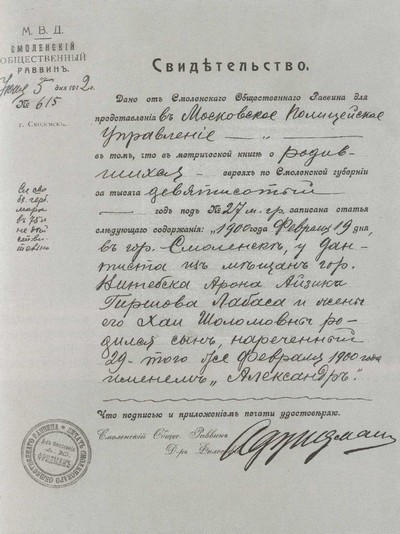 М. В. Д.
СМОЛЕНСКІЙ
ОБЩЕСТВЕННЫЙ
РАВВИНЪ.
5 дня 1912 г.
№ 615
г. Смоленскъ.
Свидѣтельство.
Дано отъ Смоленскаго Общественнаго Раввина для
представленія въ Московское Полицейское
Управленіе
въ томъ, что въ метрической книгѣ о родив-
шихся евреяхъ по Смоленской губерніи
за тысяча девятисотый
годъ подъ № 27 м. гр. записана статья
слѣдующаго содержанія: „1900 года Февраля 19 дня,
въ гор. Смоленскѣ, у дан-
тиста изъ мѣщанъ гор.
Витебска Арона Айзика
Гиршова Лабаса и жены
его Хаи Шоломовны ро-
дился сынъ, нареченный
29-того же Февраля 1900 года
именемъ „Александръ".
Что подписью и приложеніемъ печати удостовѣряю.
Смоленскій Общес. Раввинъ
Д-ръ Филос. Фридманъ
ПЕЧАТЬ СМОЛЕНСКАГО ОБЩЕСТВЕННАГО РАВВИНА
ФРИДМАНЪ